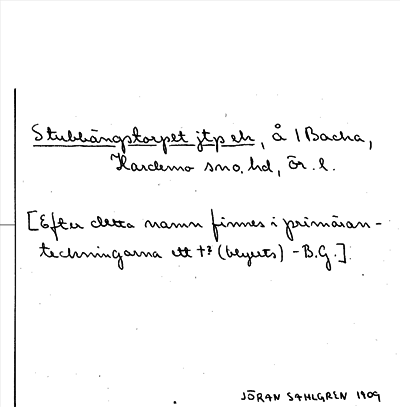 Stubbängstorpet jtp elr, å 1 Backa,
Kardemo sn o. hd, Ör. l.
[Efter detta namn finnes i primäran-
teckningarna ett +? (beyets) - B.G.]
JÖRAN SAHLGREN 1909